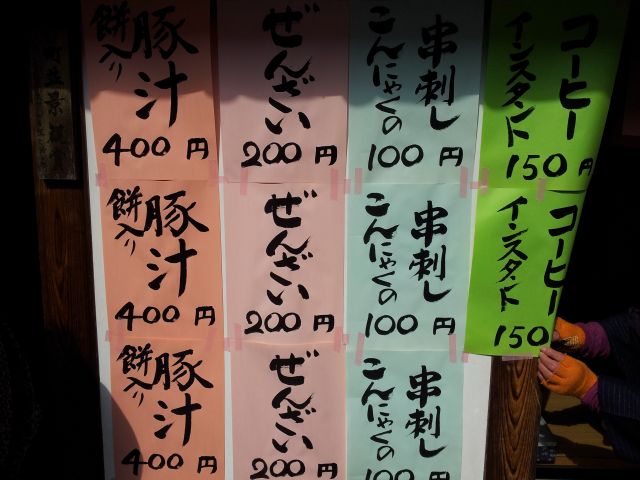 豚汁
餅入り
400円
ぜんざい
200円
串刺し
こんにゃくの
100円
コーヒー
インスタント
150円
豚汁
餅入り
400円
ぜんざい
200円
串刺し
こんにゃくの
100円
コーヒー
インスタント
150
豚汁
餅入り
400円
ぜんざい
200円
串刺し
こんにゃくの
100円